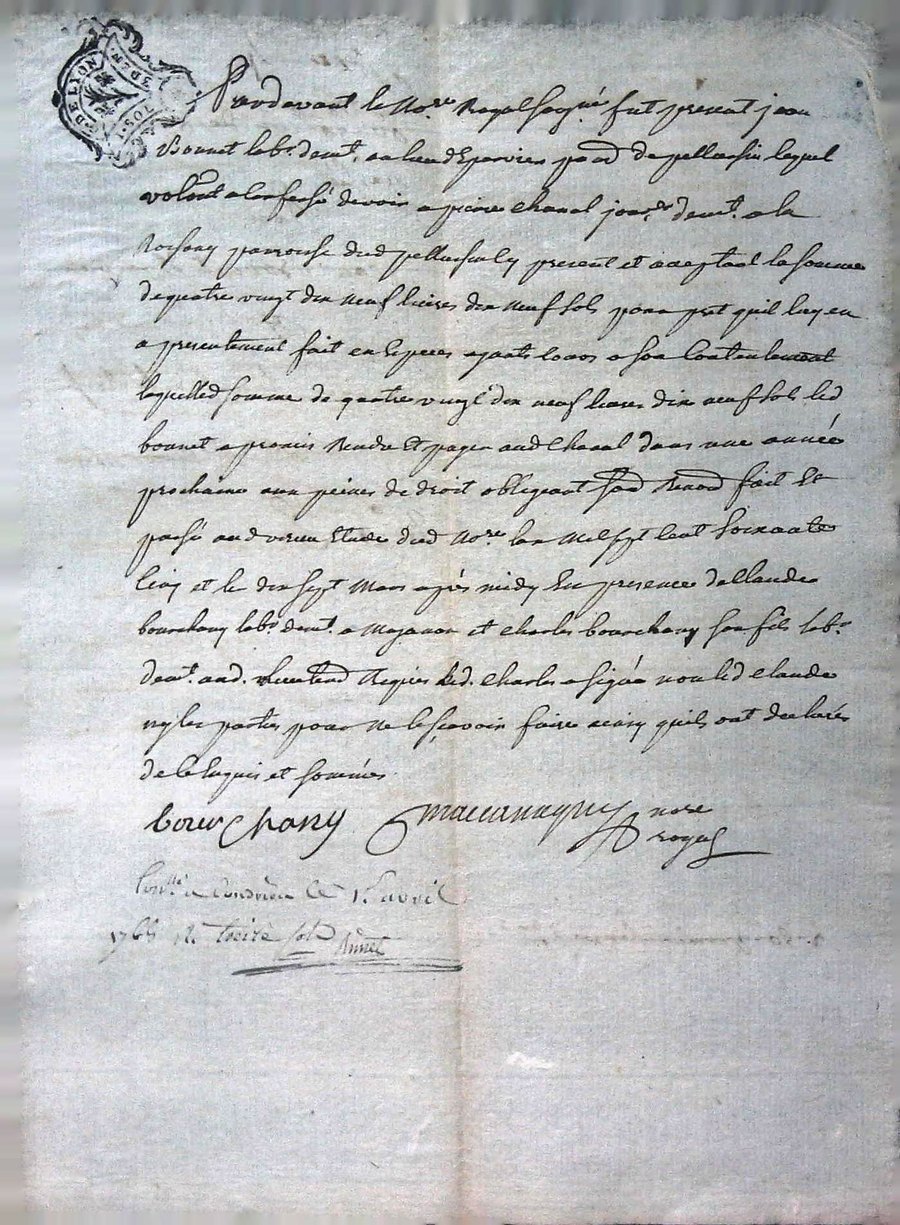 G. DE LYON
1. SOL 3 DEN
Pardevant le No.re Royal soq.né fut present jean
Bonnet lab.r dem.t au lieu d par.d de pellussin lequel
volont a confessé devoir a pierre chaval jour.er dem.t a la
parroisse dud pellussin ly present et aceptant la somme
de quatre vingt dix neuf livres dix neuf sols pour pret quil luy en
a presentement fait en especes ayants cours a son contentement
laquelled somme de quatre vingt dix neuf livres dix neuf sols led
bonnet a promis Rendre Et payer aud chaval dans une année
prochaine aux peines de droit obligeant sad Renond fait Et
passé aud virieu Etude dud No.re lan Mil sept Cent soixante
Cinq et le dix sept Mars après midy En presence de Claude
bourchany lab.r dem.t a Mezanan et charles bourchany son fils lab.r
dem.t aud. Requis led. Charles a signé non led claude
ny les parties pour ne le sçavoir faire ainsy quils ont declarés
de ce Enquis et sommés
bourchany nore
royal
Con.llé a Condrieu le 1.er avril
1765 R. treize sols